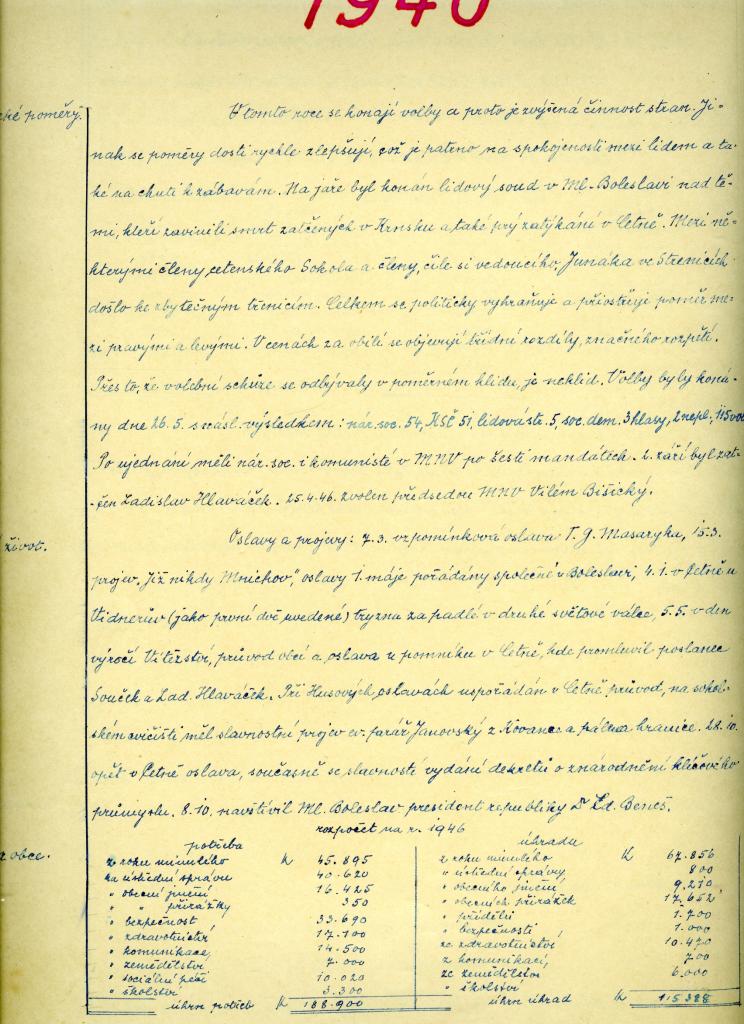 1946
ké poměry.
V tomto roce se konají volby a proto je zvýšená činnost stran. Ji-
nak se poměry dosti rychle zlepšují, což je patrno na spokojenosti mezi lidem a ta-
ké na chuti k zábavám. Na jaře byl konán lidový soud v Ml. Boleslavi nad tě-
mi, kteří zavinili smrt zatčených v Krnsku a také prý zatýkání v Cetně. Mezi ně-
kterými členy cetenského Sokola a členy, čile si vedoucího, Junáka ve Strenicích
došlo ke zbytečným třenicím. Celkem se politicky vyhraňuje a přiostřuje poměr me-
zi pravými a levými. V cenách za obilí se objevují třídní rozdíly, značného rozpětí.
Přes to, že volební schůze se odbývaly v poměrném klidu, je neklid. Volby byly koná-
ny dne 26.5. s násl. výsledkem: nár. soc. 54, KSČ 51, lidová str. 5, soc. dem. 3 hlasy, 2 nepl., 115 vol
Po ujednání měli nár. soc. i komunisté v MNV po šesti mandátech. 2. září byl zat-
čen Ladislav Hlaváček. 25.4.46. zvolen předsedou MNV Vilém Bišický.
život.
Oslavy a projevy: 7.3. vzpomínková oslava T. G. Masaryka, 15.3.
projev „Již nikdy Mnichov", oslavy 1. máje pořádány společně v Boleslavi, 4.5. v Cetně u
Vidnerův (jako první dvě uvedené) tryzna za padlé v druhé světové válce, 5.5. v den
výročí Vítězství, průvod obcí a oslava u pomníku v Cetně, kde promluvil poslanec
Souček a Lad. Hlaváček. Při Husových oslavách uspořádán v Cetně průvod, na sokol-
ském cvičišti měl slavnostní projev ev. farář Janovský z Kovance a pálena hranice. 28.10.
opět v Cetně oslava, současně se slavností vydání dekretů o znárodnění klíčového
průmyslu. 8.10. navštívil Ml. Boleslav president republiky Dr Ed. Beneš.
rozpočet na r. 1946
z obce.
potřeba
z roku minulého K 45.895
na ústřední správu 40.620
" obecní jmění 16.425
" " přirážky 350
" bezpečnost 33.690
" zdravotnictví 17.100
" komunikace 14.500
" zemědělství 7.000
" sociální péči 10.020
" školství 3.300
úhrn potřeb K 188.900
úhrada
z roku minulého K 67.856
" ústřední správy 800
" obecního jmění 9.210
" obecních přirážek 17.652
" přídělů 1.700
" bezpečnosti 1.000
ze zdravotnictví 10.470
z komunikací 700
ze zemědělství 6.000
" školství
úhrn úhrad K 115.388